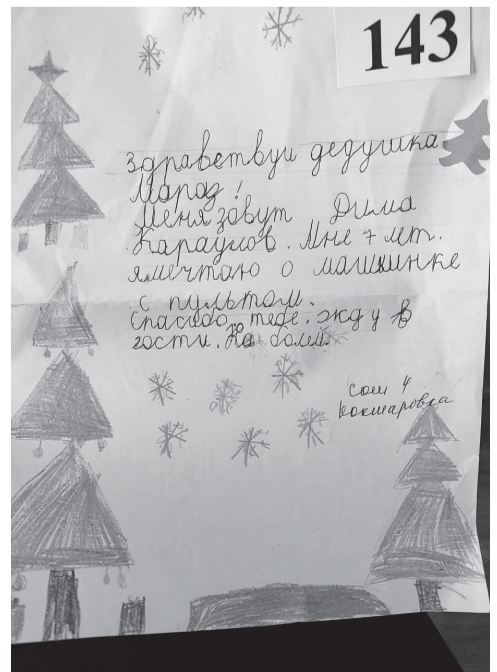 143
Здраветвуи дедушка
Мараз!
Меня зовут Дима
Караулов. Мне 7 лет.
ямечтаю о машинке
с пультом.
Спасибо тебе. жду в
гости. Не болей.
сош 4
Кокшаровка